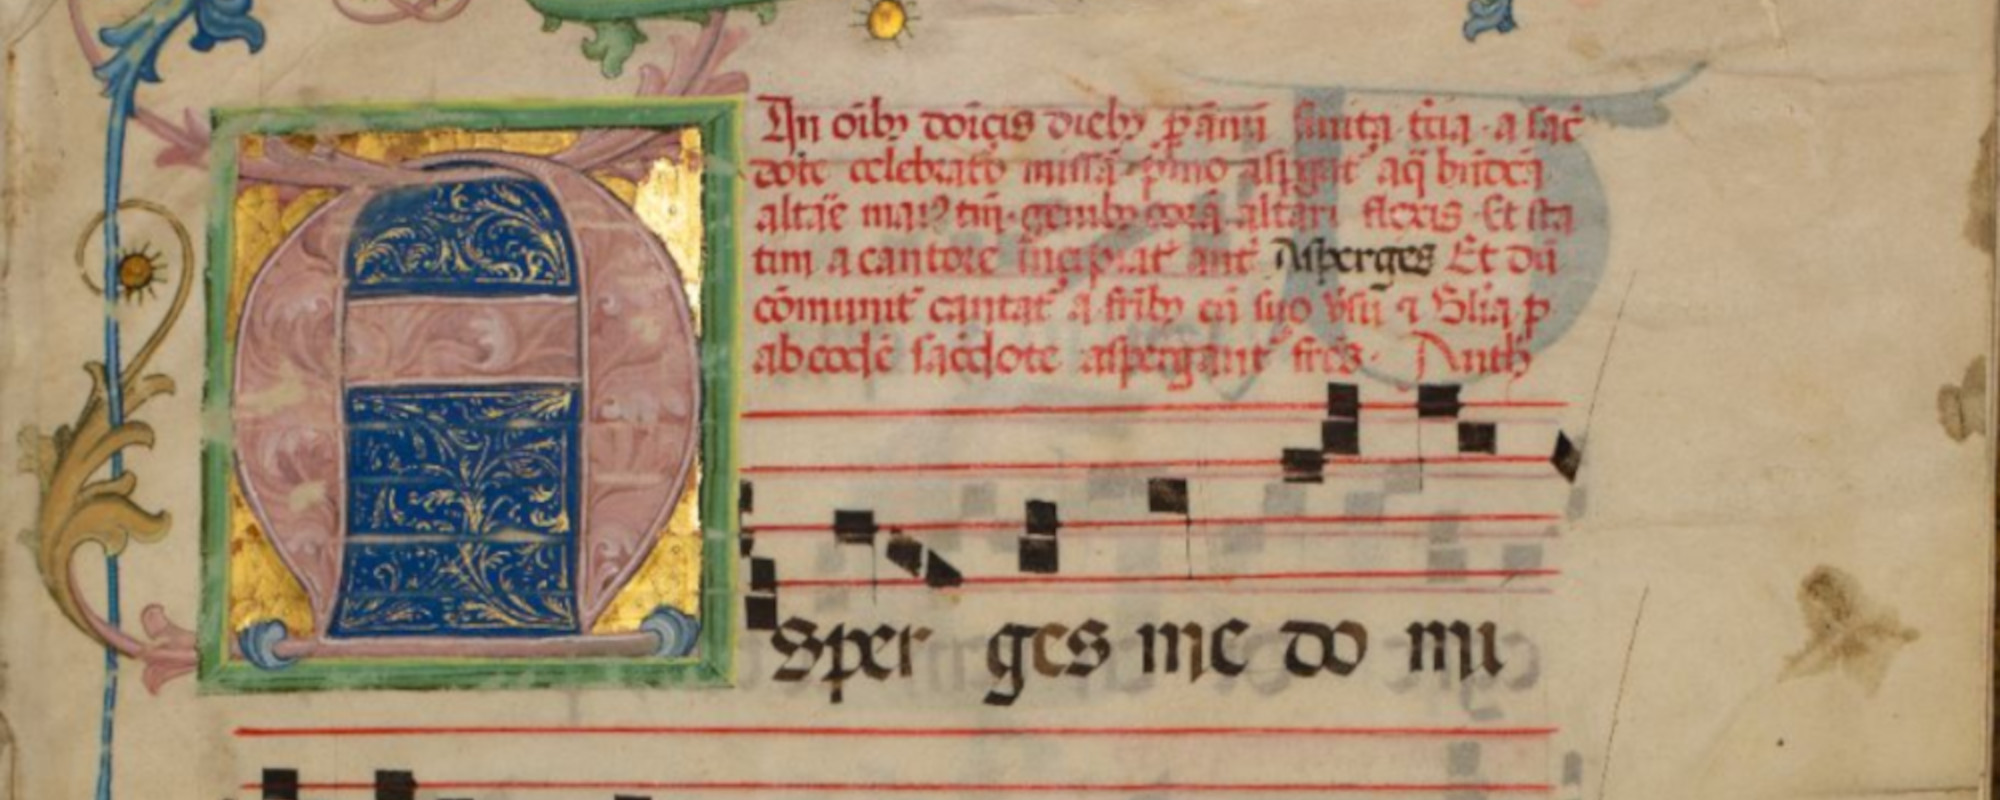 In oībꝫ doīcis diebꝫ p̄ānū finita tc̄ia · a sac̄
dote celebratꝰ missā · p̄mo aspgit̄ aq̄ bn̄dcā
altāe
tm̄ · genibꝫ corā altari flexis · Et sta
tim a cantore incipiat̄ ant̄ Asperges Et dū
cōmunit̄ cantat̄ a frībꝫ cū suo v̄su ⁊ Glīa p̄
ab eodē sac̄dote aspergant̄ fr̄es · Anth̄
A
Sper ges me do mi